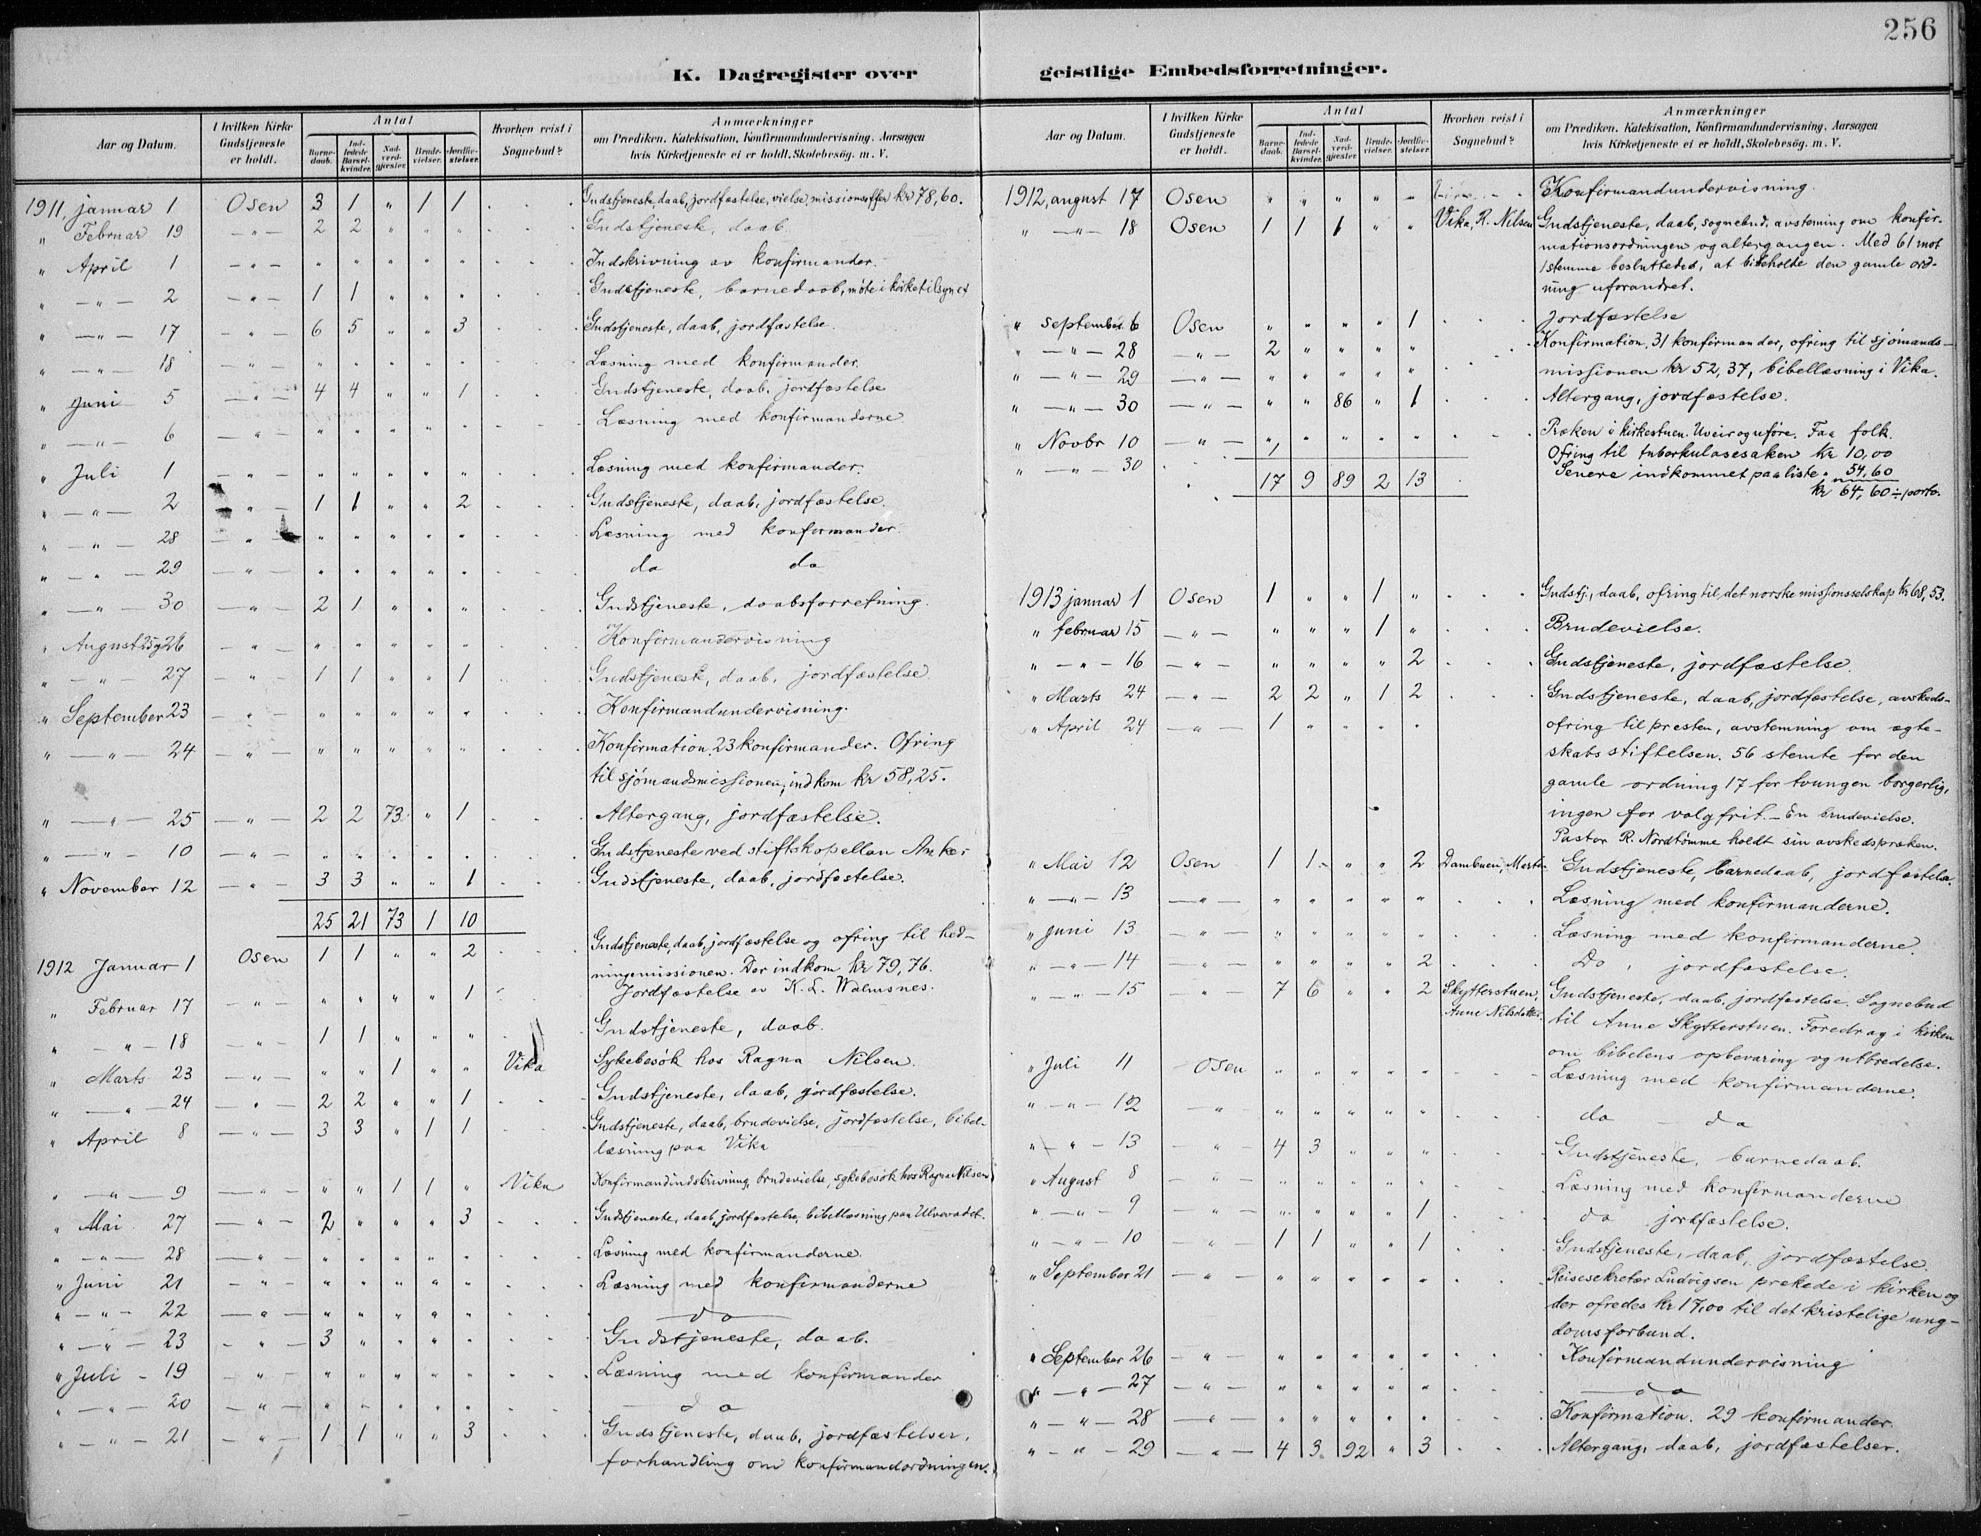 256
K. Dagregister over geistlige Embedsforretninger.
Aar og Datum. I hvilken Kirke Gudstjeneste er holdt. Antal Barne-daab. Ind-ledede Barsel-kvinder. Nad-verd-gjester. Brude-vielser. Jordfæ-stelser. Hvorhen reist i Sognebud? Anmærkninger om Prædiken, Katekisation, Konfirmandundervisning, Aarsagen hvis Kirketjeneste ei er holdt, Skolebesög. m. V.
1911, januar 1 Osen 3 1 " 1 1 . . . Gudstjeneste, daab, jordfæstelse, vielse, missionsoffer kr 78,60.
" Februar 19 — " — 2 2 " " " . . . Gudstjeneste, daab.
" April 1 — " — " " " " " . . . Indskrivning av konfirmander.
" — " — 2 — " — 1 1 " " " . . . Gudstjeneste, barnedaab, möte i kirketilsynet
" — " — 17 — " — 6 5 " " 3 . . . Gudstjeneste, daab, jordfæstelse.
" — " — 18 — " — " " " " " . . . Læsning med konfirmander.
" Juni 5 — " — 4 4 " " 1 . . . Gudstjeneste, daab, jordfæstelse
" — " — 6 — " — " " " " " . . . Læsning med konfirmanderne
" Juli 1 — " — " " " " " . . . Læsning med konfirmander.
" — " — 2 " 1 1 " " 2 . . . Gudstjeneste, daab, jordfæstelse.
" — " — 28 — " — " " " " " . . . Læsning med konfirmander.
" — " — 29 — " — " " " " " . . . do do
" — " — 30 — " — 2 1 " " " . . . Gudstjeneste, daabsforretning.
" August 25 og 26 — " — " " " " " . . . Konfirmandervisning
" — " — 27 — " — 1 1 " " 1 . . . Gudstjeneste, daab, jordfæstelse
" September 23 — " — " " " " " . . . Konfirmandundervisning.
" — " — 24 " " " " " " . . . Konfirmation, 23 konfirmander. Ofring
til sjömandsmissionen, indkom kr 58,25.
" — " — 25 — " — 2 2 73 " 1 . . . Altergang, jordfæstelse.
" — " — 10 — " — " " " " " . . . Gudstjeneste ved stiftskapellan Anker
" November 12 — " — 3 3 " " 1 . . . Gudstjeneste, daab, jordfæstelse.
25 21 73 1 10
1912 Januar 1 Osen 1 1 " " 2 . . . Gudstjeneste, daab, jordfæstelse og ofring til hed-
ningemissionen. Der indkom kr 79,76.
" Februar 17 — " — " " " " 1 . . Jordfæstelse av K. L. Walmsnes.
" — " — 18 — " — 1 1 " " " Gudstjeneste, daab.
" Marts 23 — " — " " 1 " " Vika Sykebesök hos Ragna Nilsen.
" — " — 24 — " — 2 2 " " 1 . . . Gudstjeneste, daab, jordfæstelse.
" April 8 — " — 3 3 " 1 1 . . . Gudstjeneste, daab, brudevielse, jordfæstelse, bibel-
læsning paa Vika
" — " — 9 — " — " " 1 1 " Vika Konfirmandindskrivning, brudevielse, sykebesök hos Ragna Nilsen
" Mai 27 — " — 2 " " " 3 . . . Gudstjeneste, daab, jordfæstelse, bibellæsning paa Ulvevadet.
" — " — 28 — " — " " " " " . . . Læsning med konfirmanderne.
" Juni 21 — " — " " " " " . . . Læsning med konfirmanderne
" — " — 22 — " — " " " " " . . . do
" — " — 23 — " — 3 " " " " . . . Gudstjeneste, daab.
" Juli - 19 — " — " " " " " . . . Læsning med konfirmander
" — " — 20 — " — " " " " " . . . do
" — " — 21 — " — 1 1 " " 3 . . . Gudstjeneste, daab, jordfæstelser,
forhandling om konfirmandordningen.
Aar og Datum. I hvilken Kirke Gudstjeneste er holdt. Antal Barne-daab. Ind-ledede Barsel-kvinder. Nad-verd-gjester. Brude-vielser. Jordfæ-stelser. Hvorhen reist i Sognebud? Anmærkninger om Prædiken, Katekisation, Konfirmandundervisning, Aarsagen hvis Kirketjeneste ei er holdt, Skolebesög. m. V.
1912, august 17 Osen " " " " " Konfirmandundervisning.
" — " — 18 Osen 1 1 1 " " Vika, R. Nilsen Gudstjeneste, daab, sognebud, avstemning om konfir-
mationsordningen og altergangen. Med 61 mot
1 stemme besluttedes, at bibeholde den gamle ord-
ning uforandret.
" September 6 Osen " " " " 1 . . . Jordfæstelse
" — " — 28 — " — 2 " " " " . . Konfirmation, 31 konfirmander, ofring til sjömands-
" — " — 29 — " — " " " " " . . . missionen kr 52,37, bibellæsning i Vika.
" — " — 30 — " — " " 86 " 1 . . . Altergang, jordfæstelse.
" Novbr 10 — " — " " " " " . . . Præken i kirkestuen. Uveir og uföre. Faa folk.
" — " — 30 Ofring til tuberkulosesaken kr 10,00
17 9 89 2 13 Senere indkommet paa liste " 54,60
kr 64,60 ÷ porto.
1913 januar 1 Osen 1 " " 1 " . . . Gudstj., daab, ofring til det norske missionsselskap kr 68,53.
" februar 15 — " — " " " 1 " . . . Brudevielse.
" — " — 16 — " — " " " " 2 . . . Gudstjeneste, jordfæstelse
" Marts 24 — " — 2 2 " 1 2 . . . Gudstjeneste, daab, jordfæstelse, avskeds-
" April 24 — " — 1 " " " " ofring til presten, avstemning om ægte-
skabsstiftelsen. 56 stemte for den
gamle ordning 17 for tvungen borgerlig,
ingen for valgfrit. — En brudevielse.
Pastor R. Nordtömme holdt sin avskedspræken.
" Mai 12 Osen 1 1 " " 2 Dambuen, Marta Gudstjeneste, barnedaab, jordfæstelse.
" — " — 13 — " — " " " " " . . . Læsning med konfirmanderne.
" Juni 13 — " — " " " " " . . . Læsning med konfirmanderne.
" — " — 14 — " — " " " " 2 . . . Do, jordfæstelse.
" — " — 15 — " — 7 6 " " 2 Skytterstuen, Gudstjeneste, daab, jordfæstelse, Sognebud
Anne Nilsdatter. til Anne Skytterstuen. Foredrag i kirken
om bibelens opbevaring og utbredelse.
" Juli 11 Osen " " " " " - - - Læsning med konfirmanderne.
" — " — 12 — " — " " " " " . . . do — do
" — " — 13 — " — 4 3 " " " . . . Gudstjeneste, barnedaab.
" August 8 — " — " " " " " . . . Læsning med konfirmanderne
" — " — 9 — " — " " " " 1 . . . do jordfæstelse.
" — " — 10 — " — 1 1 " " 1 . . . Gudstjeneste, daab, jordfæstelse.
" September 21 — " — " " " " " . . . Reisesekretær Ludvigsen prekede i kirken og
der ofredes kr 17,00 til det kristelige ung-
domsforbund.
" September 26 — " — " " " " " . . . Konfirmandundervisning
" — " — 27 — " — " " " " " . . . do
" — " — 28 — " — " " " " " . . . Konfirmation. 29 konfirmander
" — " — 29 — " — 4 3 92 " 3 . . . Altergang, daab, jordfæstelser.